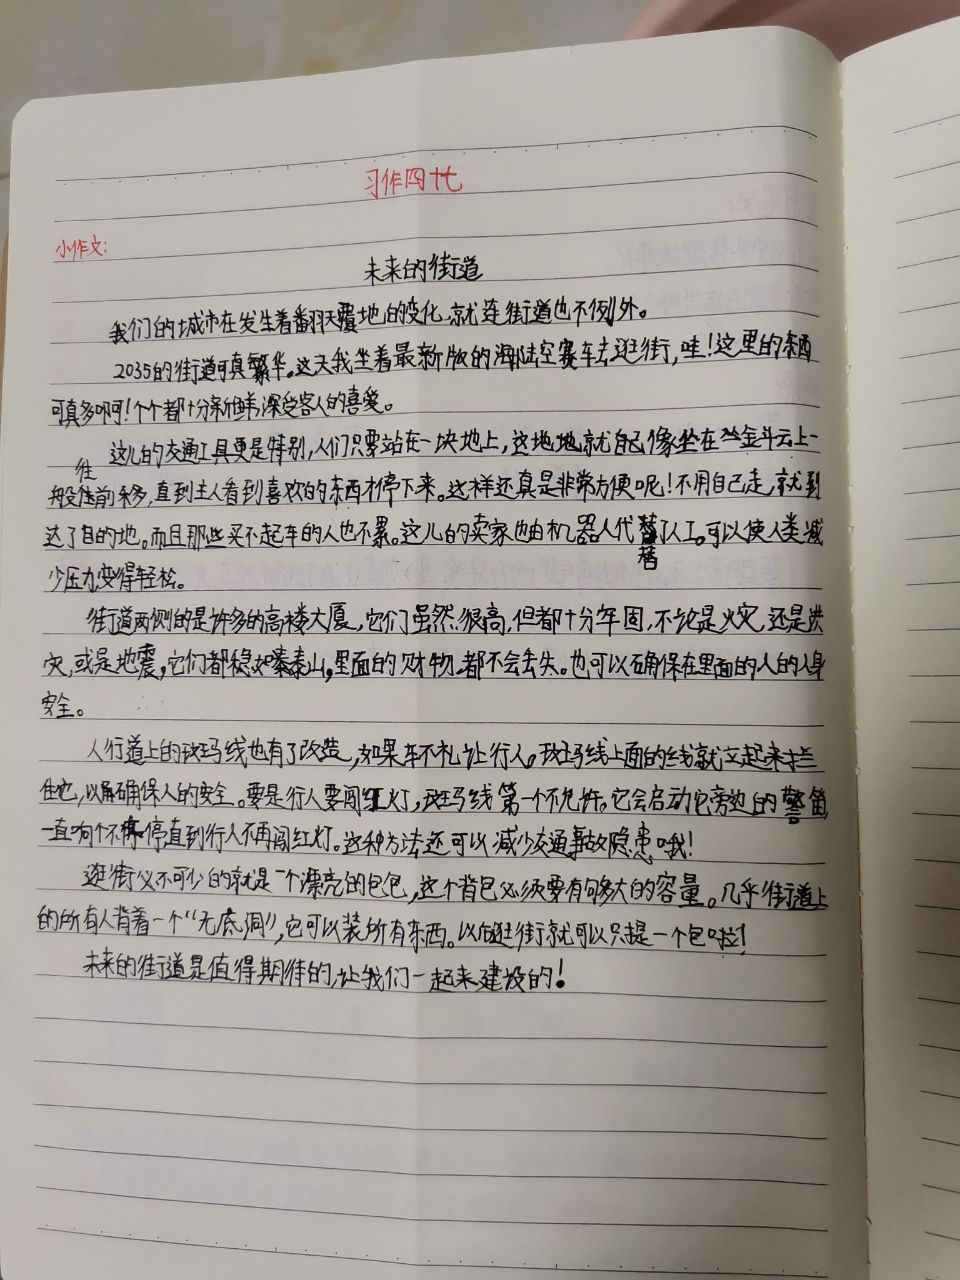 习作四十七
小作文:
未来的街道
我们的城市在发生着翻天覆地的变化,就连街道也不例外。
2035的街道可真繁华。这天我坐着最新版的海陆空赛车去逛街,哇!这里的东西
可真多啊!个个都十分新鲜,深受客人的喜爱。
这儿的交通工具更是特别,人们只要站在一块地上,这块地就自己像坐在金斗云上一
般往前移,直到主人看到喜欢的东西才停下来。这样还真是非常方便呢!不用自己走,就到
达了目的地。而且那些买不起车的人也不累。这儿的卖家也由机器人代替了人工。可以使人类减
少压力变得轻松。
街道两侧的是许多的高楼大厦,它们虽然很高,但都十分牢固,不论是火灾,还是洪
灾,或是地震,它们都稳如泰山,里面的财物都不会丢失。也可以确保在里面的人的人身
安全。
人行道上的斑马线也有了改造,如果车不礼让行人。斑马线上面的线就立起来拦
住它,以确保人的安全。要是行人要闯红灯,斑马线第一个不允许。它会启动它旁边的警笛
一直响个不停直到行人不再闯红灯。这种方法还可以减少交通事故隐患哦!
逛街必不可少的就是一个漂亮的包包,这个背包必须要有够大的容量。几乎街道上
的所有人背着一个“无底洞”,它可以装所有东西。以后逛街就可以只提一个包啦!
未来的街道是值得期待的,让我们一起来建设的!